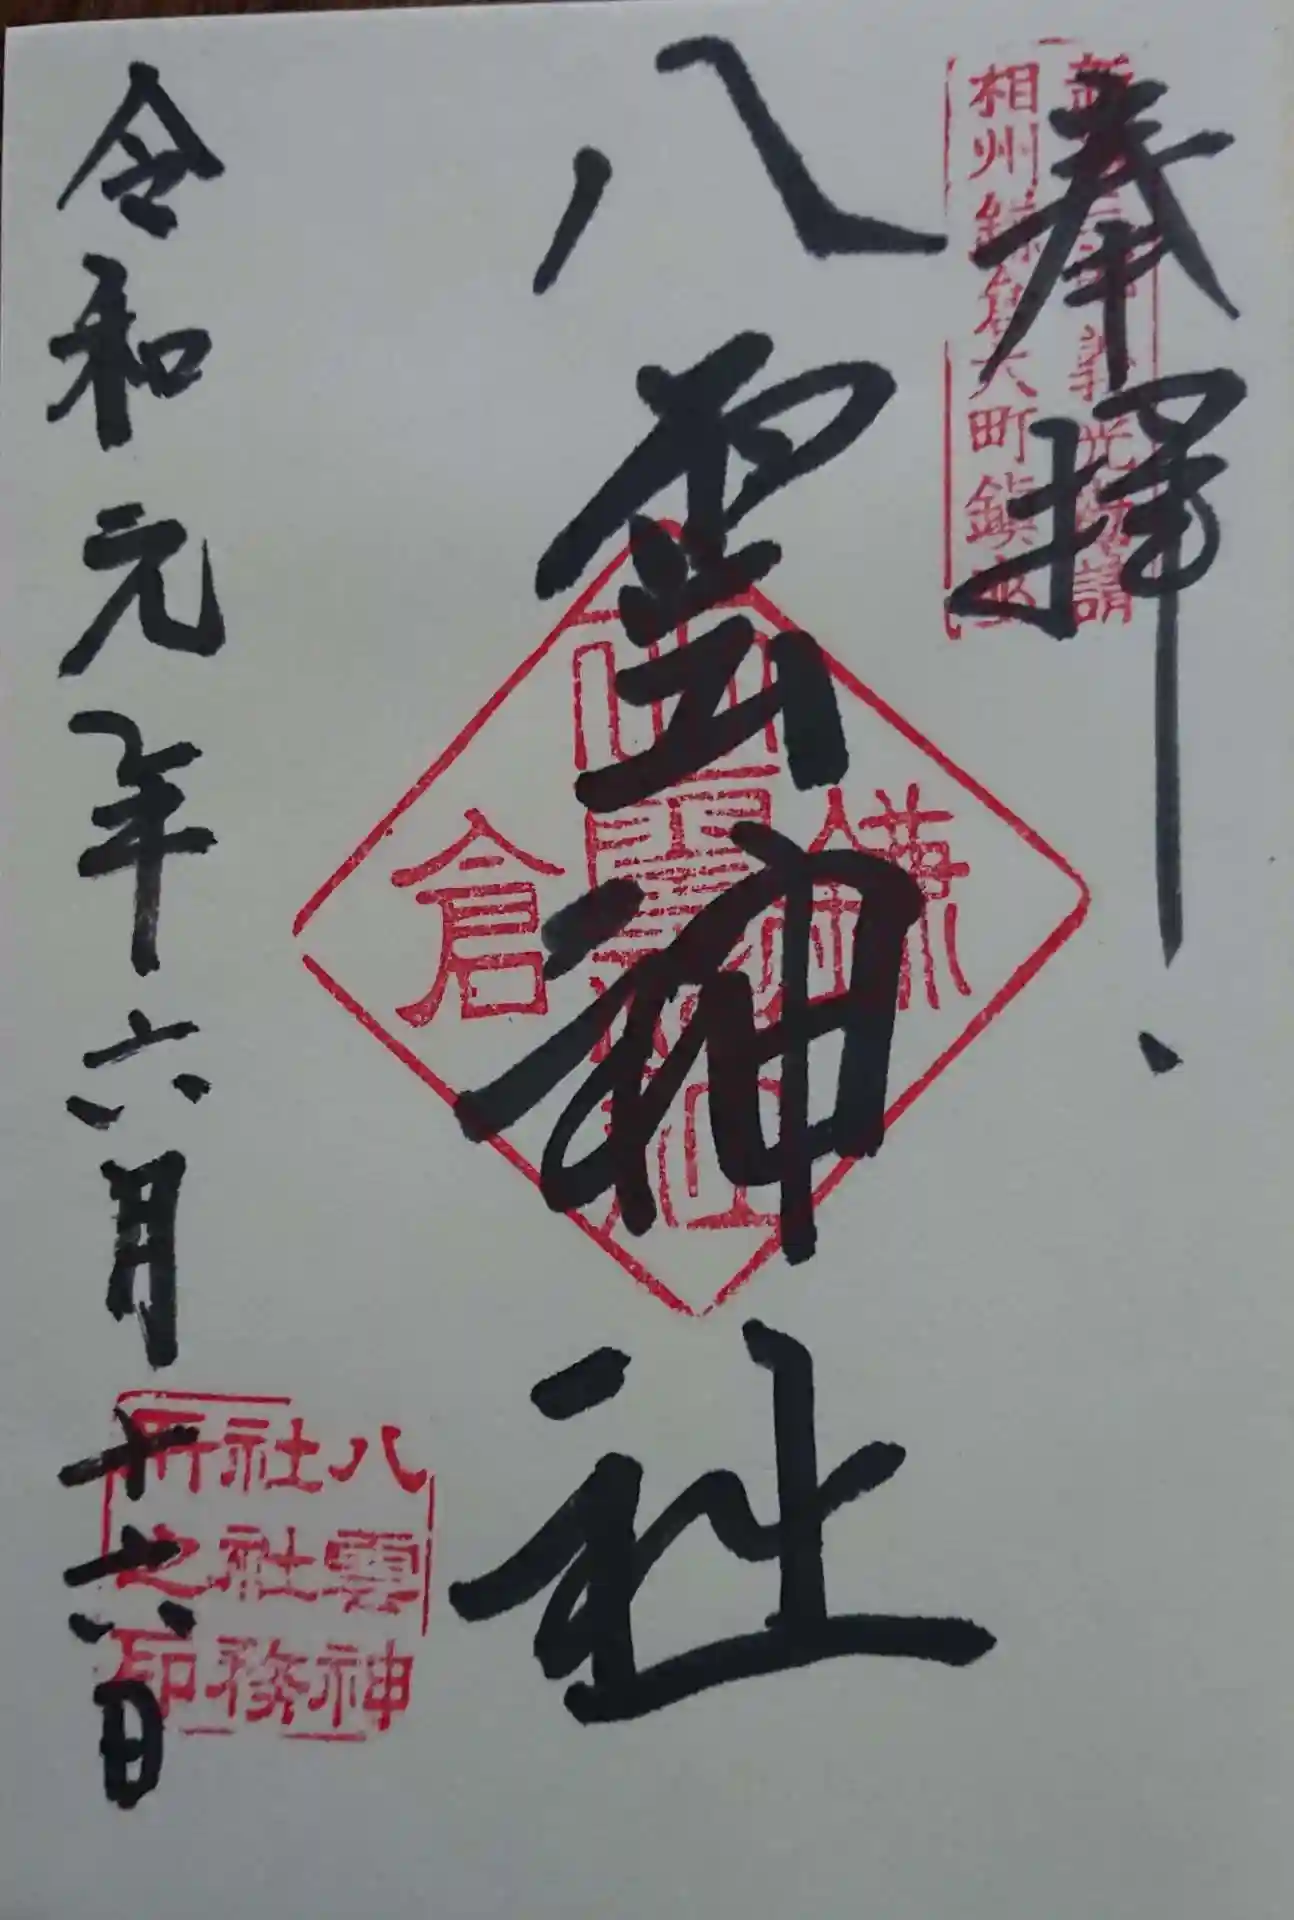 奉拝
相州鎌倉大町鎮座
八雲神社
鎌倉
八雲神社社務所之印
令和元年六月十六日